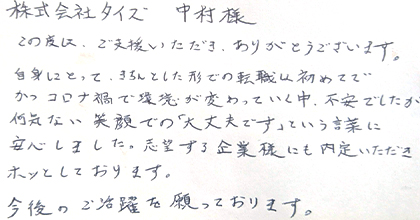 株式会社タイズ 中村様
この度は、ご支援いただき、ありがとうございます。
自身にとって、きちんとした形での転職は初めてで
かつコロナ禍で環境が変わっていく中、不安でしたが
何気ない笑顔での「大丈夫です」という言葉に
安心しました。志望する企業様にも内定いただき
ホッとしております。
今後のご活躍を願っております。